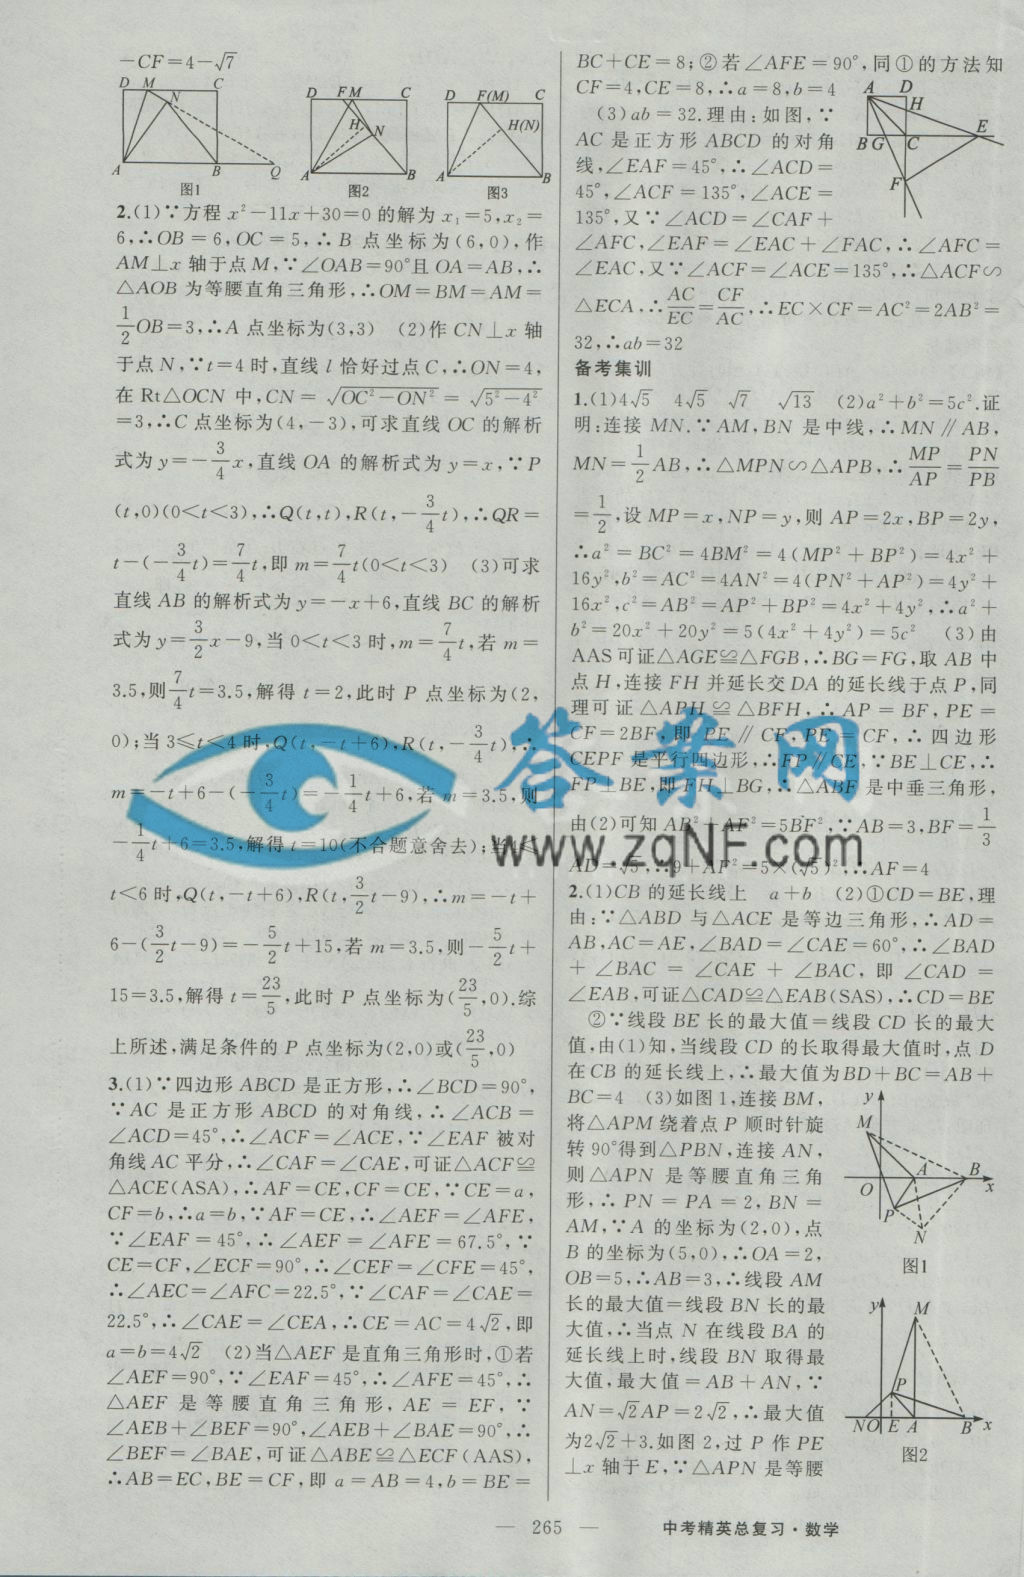 －CF＝4－√7
D M C
N
A B Q
图1
D F M C
H N
A B
图2
D F(M) C
H(N)
A B
图3
2.(1)∵方程 x²－11x＋30＝0 的解为 x₁＝5,x₂＝
6,∴OB＝6,OC＝5,∴B 点坐标为(6,0),作
AM⊥x 轴于点 M,∵∠OAB＝90°且 OA＝AB,∴
△AOB 为等腰直角三角形,∴OM＝BM＝AM＝
1/2 OB＝3,∴A 点坐标为(3,3) (2)作 CN⊥x 轴
于点 N,∵t＝4 时,直线 l 恰好过点 C,∴ON＝4,
在 Rt△OCN 中,CN＝√(OC²－ON²)＝√(5²－4²)
＝3,∴C 点坐标为(4,－3),可求直线 OC 的解析
式为 y＝－3/4 x,直线 OA 的解析式为 y＝x,∵P
(t,0)(0＜t＜3),∴Q(t,t),R(t,－3/4 t),∴QR＝
t－(－3/4 t)＝7/4 t,即 m＝7/4 t(0＜t＜3) (3)可求
直线 AB 的解析式为 y＝－x＋6,直线 BC 的解析
式为 y＝3/2 x－9,当 0＜t＜3 时,m＝7/4 t,若 m＝
3.5,则 7/4 t＝3.5,解得 t＝2,此时 P 点坐标为(2,
0);当 3≤t＜4 时,Q(t,－t＋6),R(t,－3/4 t),∴
m＝－t＋6－(－3/4 t)＝－1/4 t＋6,若 m＝3.5,则
－1/4 t＋6＝3.5,解得 t＝10(不合题意舍去);当 4≤
t＜6 时,Q(t,－t＋6),R(t,3/2 t－9),∴m＝－t＋
6－(3/2 t－9)＝－5/2 t＋15,若 m＝3.5,则－5/2 t＋
15＝3.5,解得 t＝23/5,此时 P 点坐标为(23/5,0).综
上所述,满足条件的 P 点坐标为(2,0)或(23/5,0)
3.(1)∵四边形 ABCD 是正方形,∴∠BCD＝90°,
∵AC 是正方形 ABCD 的对角线,∴∠ACB＝
∠ACD＝45°,∴∠ACF＝∠ACE,∵∠EAF 被对
角线 AC 平分,∴∠CAF＝∠CAE,可证△ACF≌
△ACE(ASA),∴AF＝CE,CF＝CE,∵CE＝a,
CF＝b,∴a＝b,∵AF＝CE,∴∠AEF＝∠AFE,
∵∠EAF＝45°,∴∠AEF＝∠AFE＝67.5°,∵
CE＝CF,∠ECF＝90°,∴∠CEF＝∠CFE＝45°,
∴∠AEC＝∠AFC＝22.5°,∵∠CAF＝∠CAE＝
22.5°,∴∠CAE＝∠CEA,∴CE＝AC＝4√2,即
a＝b＝4√2 (2)当△AEF 是直角三角形时,①若
∠AEF＝90°,∵∠EAF＝45°,∴∠AFE＝45°,∴
△AEF 是等腰直角三角形,AE＝EF,∵
∠AEB＋∠BEF＝90°,∠AEB＋∠BAE＝90°,∴
∠BEF＝∠BAE,可证△ABE≌△ECF(AAS),
∴AB＝EC,BE＝CF,即 a＝AB＝4,b＝BE＝
BC＋CE＝8;②若∠AFE＝90°,同①的方法知
CF＝4,CE＝8,∴a＝8,b＝4
(3)ab＝32.理由:如图,∵
AC 是正方形 ABCD 的对角
线,∠EAF＝45°,∴∠ACD＝
45°,∠ACF＝135°,∠ACE＝
135°,又∵∠ACD＝∠CAF＋
A D
H
E
B G C
F
∠AFC,∠EAF＝∠EAC＋∠FAC,∴∠AFC＝
∠EAC,又∵∠ACF＝∠ACE＝135°,∴△ACF∽
△ECA,∴AC/EC＝CF/AC,∴EC×CF＝AC²＝2AB²＝
32,∴ab＝32
备考集训
1.(1)4√5 4√5 √7 √13 (2)a²＋b²＝5c².证
明:连接 MN.∵AM,BN 是中线,∴MN∥AB,
MN＝1/2 AB,∴△MPN∽△APB,∴MP/AP＝PN/PB
＝1/2,设 MP＝x,NP＝y,则 AP＝2x,BP＝2y,
∴a²＝BC²＝4BM²＝4(MP²＋BP²)＝4x²＋
16y²,b²＝AC²＝4AN²＝4(PN²＋AP²)＝4y²＋
16x²,c²＝AB²＝AP²＋BP²＝4x²＋4y²,∴a²＋
b²＝20x²＋20y²＝5(4x²＋4y²)＝5c² (3)由
AAS 可证△AGE≌△FGB,∴BG＝FG,取 AB 中
点 H,连接 FH 并延长交 DA 的延长线于点 P,同
理可证△APH≌△BFH,∴AP＝BF,PE＝
CF＝2BF,即 PE∥CF,PE＝CF,∴四边形
CEPF 是平行四边形,∴FP∥CE,∵BE⊥CE,∴
FP⊥BE,即 FH⊥BG,∴△ABF 是中垂三角形,
由(2)可知 AB²＋AF²＝5BF²,∵AB＝3,BF＝1/3
AD＝√5,∴9＋AF²＝5×(√5)²,∴AF＝4
2.(1)CB 的延长线上 a＋b (2)①CD＝BE,理
由:∵△ABD 与△ACE 是等边三角形,∴AD＝
AB,AC＝AE,∠BAD＝∠CAE＝60°,∴∠BAD
＋∠BAC＝∠CAE＋∠BAC,即∠CAD＝
∠EAB,可证△CAD≌△EAB(SAS),∴CD＝BE
②∵线段 BE 长的最大值＝线段 CD 长的最大
值,由(1)知,当线段 CD 的长取得最大值时,点 D
在 CB 的延长线上,∴最大值为 BD＋BC＝AB＋
BC＝4 (3)如图 1,连接 BM,
将△APM 绕着点 P 顺时针旋
转 90°得到△PBN,连接 AN,
则△APN 是等腰直角三角
形,∴PN＝PA＝2,BN＝
AM,∵A 的坐标为(2,0),点
B 的坐标为(5,0),∴OA＝2,
OB＝5,∴AB＝3,∴线段 AM
长的最大值＝线段 BN 长的最
大值,∴当点 N 在线段 BA 的
延长线上时,线段 BN 取得最
大值,最大值＝AB＋AN,∵
AN＝√2AP＝2√2,∴最大值
为2√2＋3.如图 2,过 P 作 PE
⊥x 轴于 E,∵△APN 是等腰
y
M
A B
O x
P
N
图1
y M
P
N O E A B x
图2
答案网
www.zqNF.com
— 265 — 中考精英总复习·数学